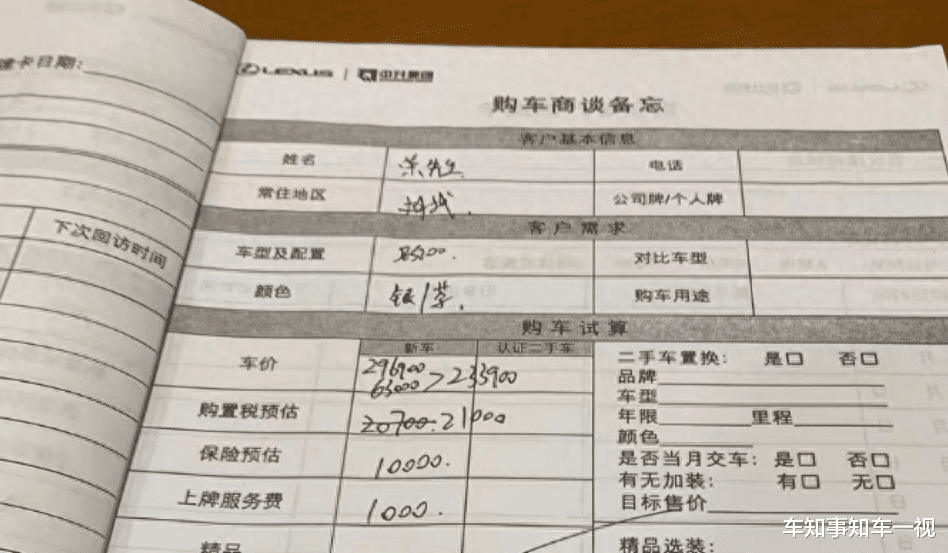 建卡日期:
下次回访时间
LEXUS | 中升集团
购车商谈备忘
客户基本信息
姓名 先生 电话
常住地区 公司牌/个人牌
客户需求
车型及配置 对比车型
颜色 银/ 购车用途
购车试算
新车 认证二手车
车价 296900 63000 > 233900
购置税预估 20700-21000
保险预估 10000.
上牌服务费 1000.
精品
二手车置换: 是□ 否□
品牌
车型
年限 里程
颜色
是否当月交车: 是□ 否□
有无加装: 有□ 无□
目标售价
精品选装:
车知事知车一视